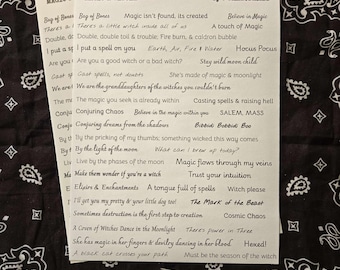 Bag of Bones Magic isn't found, its created Believe in Magic
There's a little witch inside all of us A touch of Magic
Double, double toil & trouble; Fire burn, & caldron bubble
I put a spell on you Earth, Air, Fire & Water Hocus Pocus
Are you a good witch or a bad witch? Stay wild moon child
Cast spells, not doubts She's made of magic & moonlight
We are the granddaughters of the witches you couldn't burn
The magic you seek is already within Casting spells & raising hell
Conjuring Chaos Believe in the magic within you SALEM, MASS
Conjuring dreams from the shadows Bibbidi Bobbidi Boo
By the pricking of my thumbs, something wicked this way comes.
By the light of the moon What can I brew up today?
Live by the phases of the moon Magic flows through my veins
Make them wonder if you're a witch Trust your intuition
Elixirs & Enchantments A tongue full of spells Witch please
I'll get you my pretty & your little dog too! The Mark of the Beast
Sometimes destruction is the first step to creation Cosmic Chaos
A Coven of Witches Dance in the Moonlight There's Power in Three
She has magic in her fingers & devilry dancing in her blood Hexed!
A black cat crosses your path Must be the season of the witch